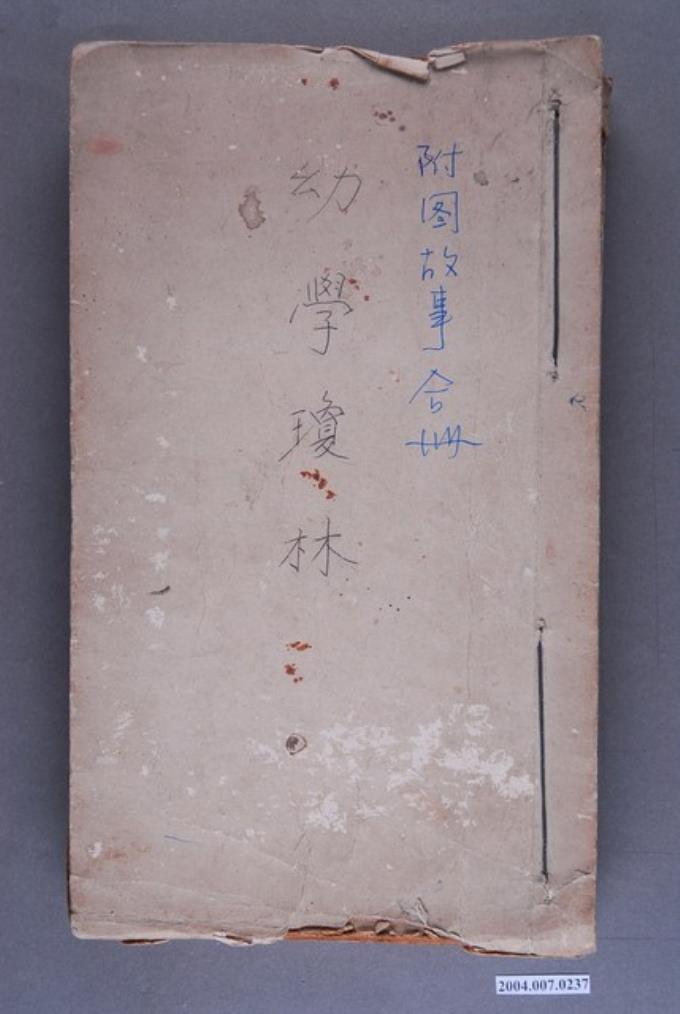 附图故事合冊
幼學瓊林
2004.007.0237